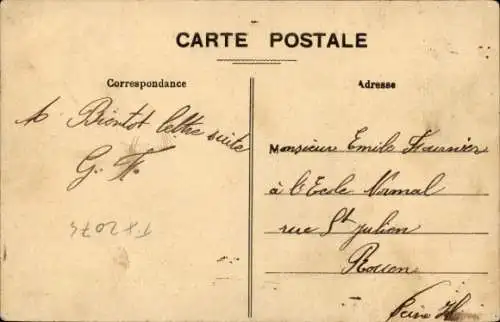 CARTE POSTALE
Correspondance
Adresse
A Bientot lettre suite
G. F.
TX2074
Monsieur Emile Fournier
à l'Ecole Normal
rue St Julien
Rouen
Seine